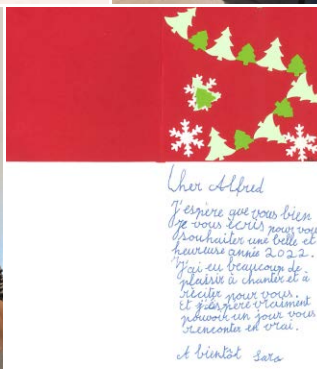 Cher Alfred
J'espère que vous bien
je vous écris pour vous
souhaiter une belle et
heureuse année 2022.
J'ai eu beaucoup de
plaisir à chanter et à
réciter pour vous.
Et j'espère vraiment
pouvoir un jour vous
rencontrer en vrai.
A bientôt Sara